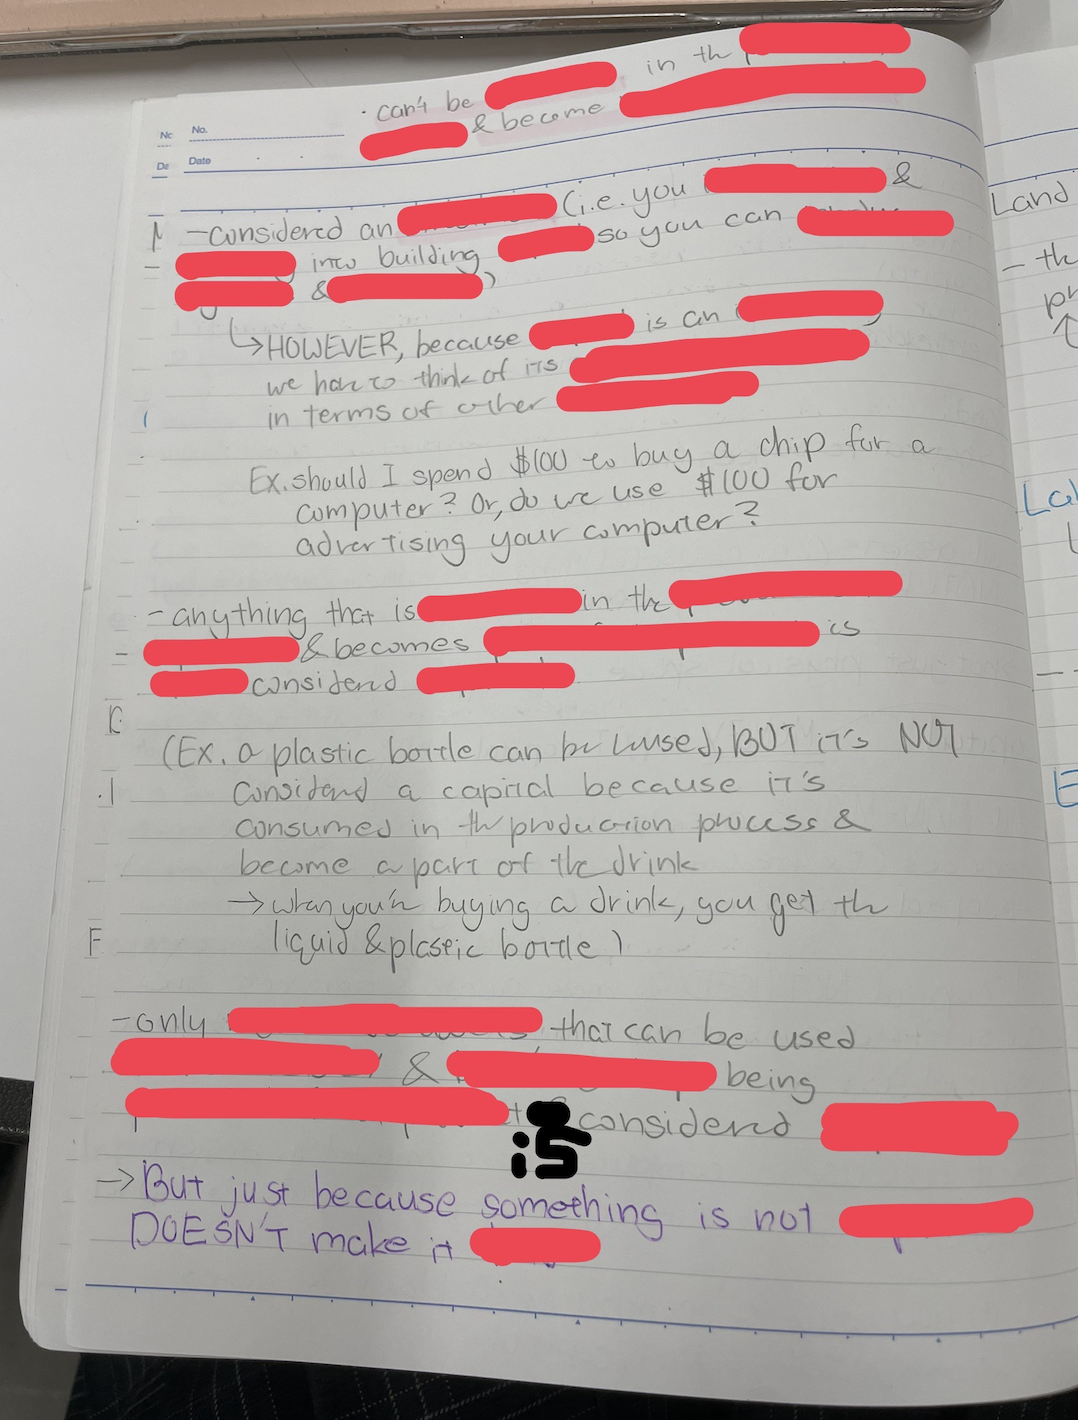 · can't be in th
& become
No.
Date
- considered an (i.e. you &
into building so you can
& )
↳ HOWEVER, because is an ,
we have to think of its
in terms of other
Ex. should I spend $100 to buy a chip for a
computer? Or, do we use $100 for
advertising your computer?
- anything that is in the
& becomes is
considered
(Ex. a plastic bottle can be used, BUT it's NOT
considered a capital because it's
consumed in the production process &
become a part of the drink
→ when you're buying a drink, you get the
liquid & plastic bottle)
- only that can be used
& being
is considered
→ But just because something is not
DOESN'T make it
Land
- th